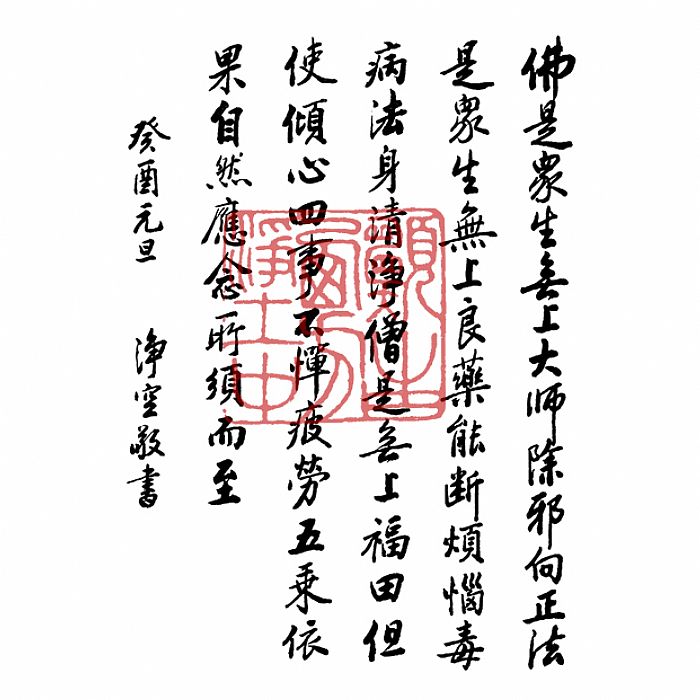 佛是眾生無上大師除邪向正法
是眾生無上良藥能断煩惱毒
病法身清淨僧是無上福田但
使傾心四事不憚疲勞五乘依
果自然應念所須而至
癸酉元旦 淨空敬書
願生
西方
淨土中